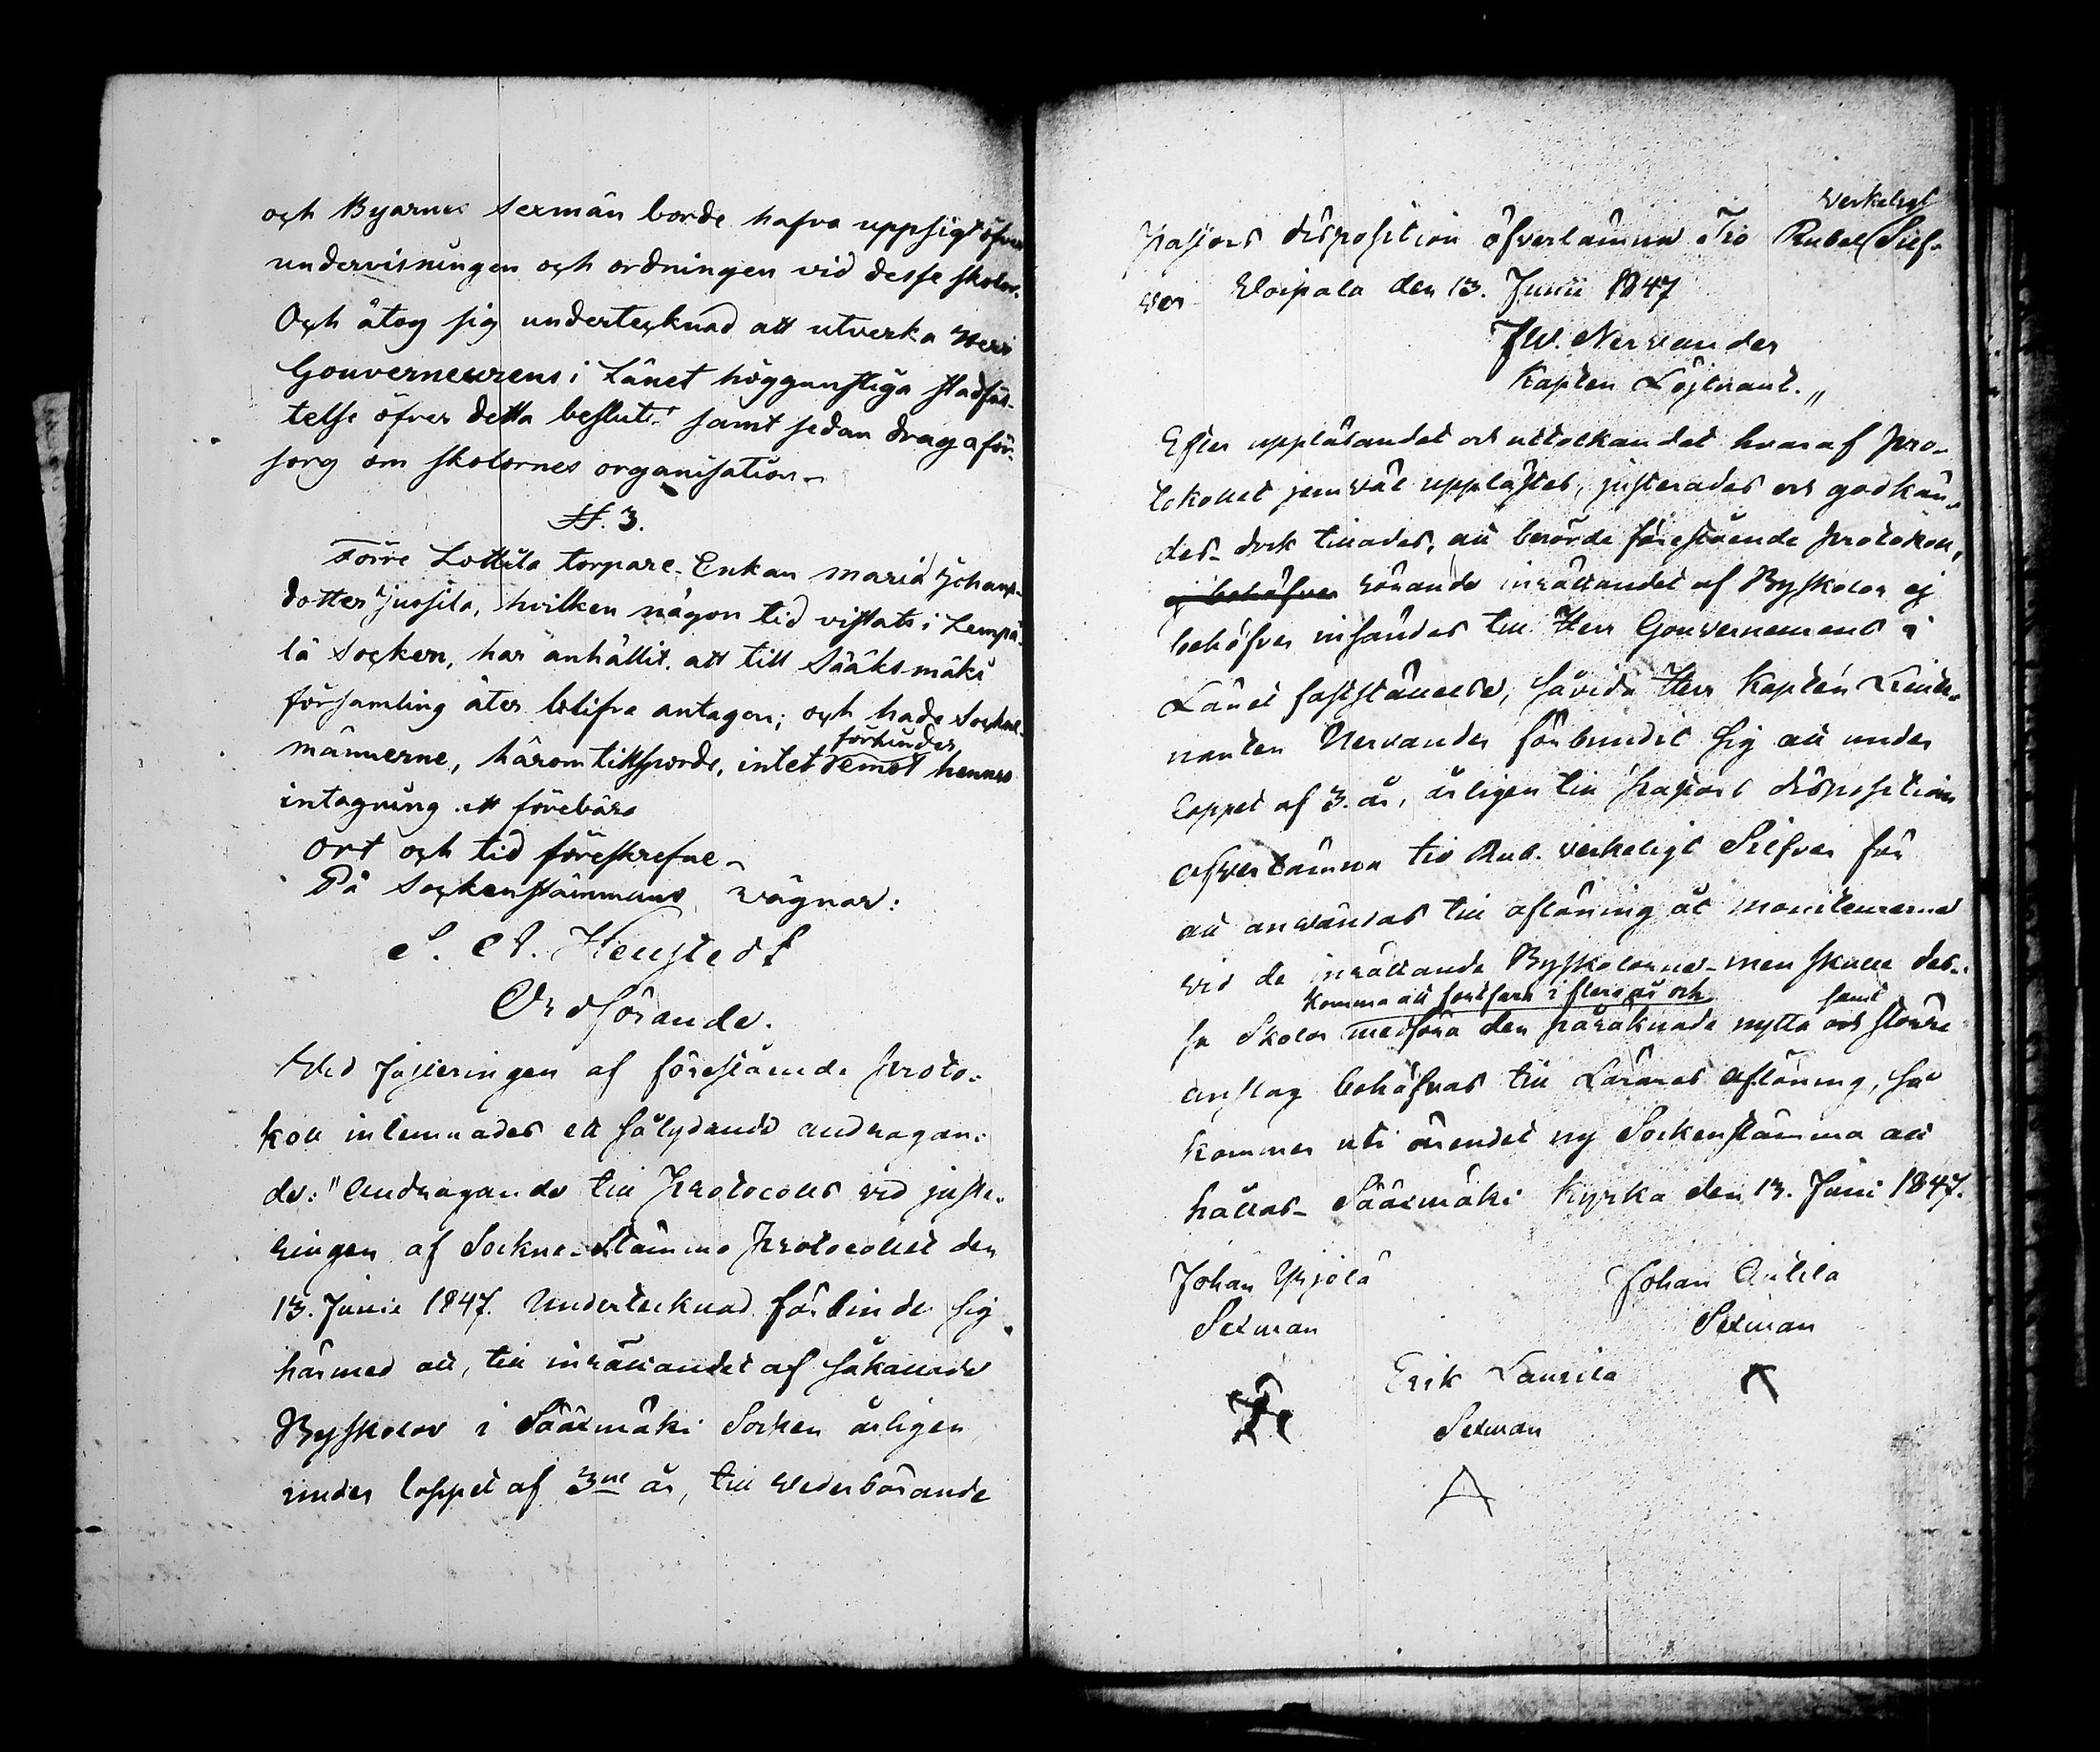 och Byarnes sexmän borde hafva uppsigt öfver
undervisningen och ordningen vid desse skolor.
Och åtog sig undertecknad att utverka Herr
Gouverneurens i Länet höggunstiga stadfäs-
telse öfver detta beslut samt sedan draga för-
sorg om skolornes organisation.
§. 3.
Förre Lottila torpare Enkan Maria Johans-
dotter Jussila, hvilken någon tid vistats i Lempä-
lä Socken, har anhållit, att till Sääksmäki
församling åter blifva antagen; och hade Sockne-
männerne, härom tillsporde, intet förhinder emot hennes
intagning att förebära
Ort och tid föreskrefne.
På Sockenstämmans vägnar:
Ordförande.
Vid justeringen af förestående Proto-
koll inlemnades ett sålydande andragan-
de: "Andragande till Protocolls vid juste-
ringen af Sockne-Stämmo Protocollet den
13. Junii 1847. Undertecknad förbinder sig
härmed att, till inrättandet af såkallade
Byskolor i Sääxmäki Socken årligen
under loppet af 3ne år, till vederbörande
Pastors disposition öfverlämna Tio Rubel verkeligt Silf-
ver Voipala den 13. Junii 1847
JW. Nervander
Kapten Löjtnant."
Efter uppläsandet och uttolkandet hvaraf pro-
tokollet jemväl upplästes, justerades och godkän-
des, dock tillades, att berörde förestående protokoll,
ej behöfver rörande inrättandet af Byskolor ej
behöfver insändas till Herr Gouverneurens i
Länet fastställelse, såvida Herr Kapten Lieute-
nanten Nervander förbundit sig att under
loppet af 3. år, årligen till Pastors disposition
öfverlämna tio Rub. verkeligt Silfver för
att användas till aflöning åt moniteurerne
vid de inrättande Byskolorne - men skulle des-
sa Skolor komma att fortfara i flera år och medföra den påräknade nytta och samt större
anslag behöfvas till Lärares aflöning, så
kommer uti ärendet ny Sockenstämma att
hållas. Sääxmäki Kyrka den 13. Juni 1847.
Johan Yrjölä
Johan Anttila
Sexman
Sexman
Erik Laurila
Sexman